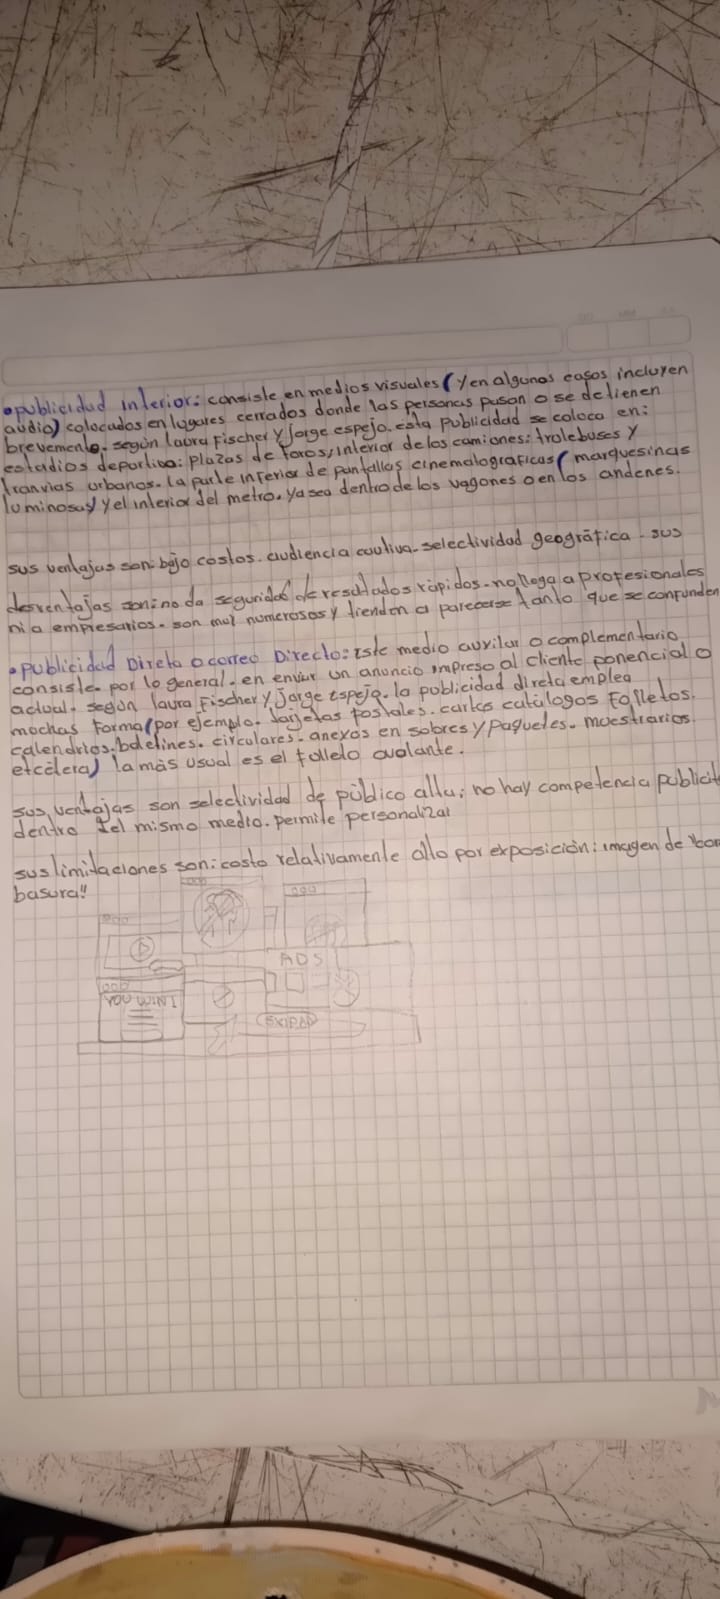 •publicidad interior: consiste en medios visuales (y en algunos casos incluyen
audio) colocados en lugares cerrados donde las personas pasan o se detienen
brevemente. según laura Fischer y Jorge espejo. esta publicidad se coloca en:
estadios deportivo: plazas de toros, interior de los camiones: trolebuses y
tranvias urbanos. la parte inferior de pantallas cinematograficas (marquesinas
luminosas) y el interior del metro. ya sea dentro de los vagones o en los andenes.
sus ventajas son: bajo costos. audiencia cautiva. selectividad geográfica. sus
desventajas son: no da seguridad de resultados rápidos. no llega a profesionales
ni a empresarios. son muy numerosos y tienden a parecerse tanto que se confunden
•publicidad Direta o correo Directo: Este medio auxiliar o complementario
consiste. por lo general. en enviar un anuncio impreso al cliente ponencial o
actual. según laura Fischer y Jorge espejo. la publicidad direta emplea
mochas forma (por ejemplo. Tarjetas Postales. cartas catálogos Folletos.
calendrios. boletines. circulares. anexos en sobres y paquetes. muestrarios.
etcétera) la más usual es el folleto o volante.
sus ventajas son selectividad de público alta; no hay competencia publicit
dentro del mismo medio. permite personalizar
sus limitaciones son: costo relativamente alto por exposición: imagen de "cor
basura!!
ADS
YOU WIN!